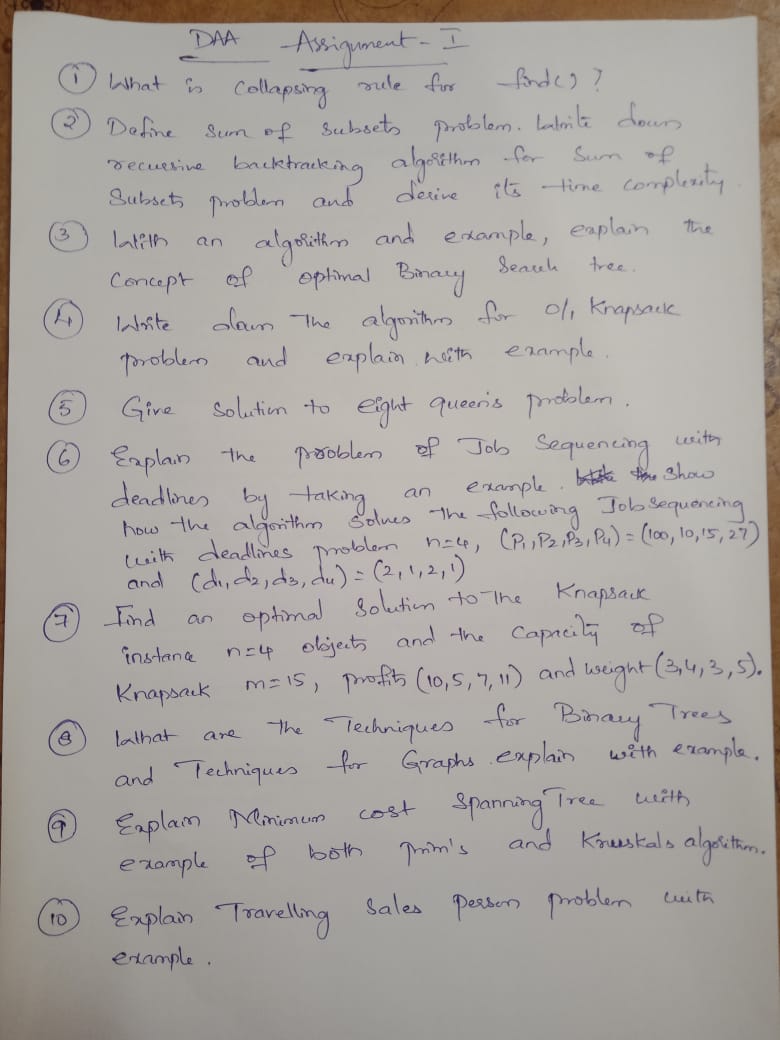 DAA Assignment - I
① What is collapsing rule for find()?
② Define sum of subsets problem. Write down
recursive backtracking algorithm for Sum of
Subsets problem and derive its time complexity.
③ With an algorithm and example, explain the
Concept of optimal Binary Search tree.
④ Write down The algorithm for 0/1 Knapsack
problem and explain with example.
⑤ Give Solution to eight queen's problem.
⑥ Explain the problem of Job Sequencing with
deadlines by taking an example. Show
how the algorithm solves the following Job sequencing
with deadlines problem n=4, (P1,P2,P3,P4) = (100,10,15,27)
and (d1,d2,d3,d4) = (2,1,2,1)
⑦ Find an optimal Solution to The Knapsack
instance n=4 objects and the Capacity of
Knapsack m=15, profits (10,5,7,11) and weight (3,4,3,5).
⑧ What are the Techniques for Binary Trees
and Techniques for Graphs explain with example.
⑨ Explain Minimum cost Spanning Tree with
example of both prim's and Kruskals algorithm.
⑩ Explain Travelling Sales person problem with
example.